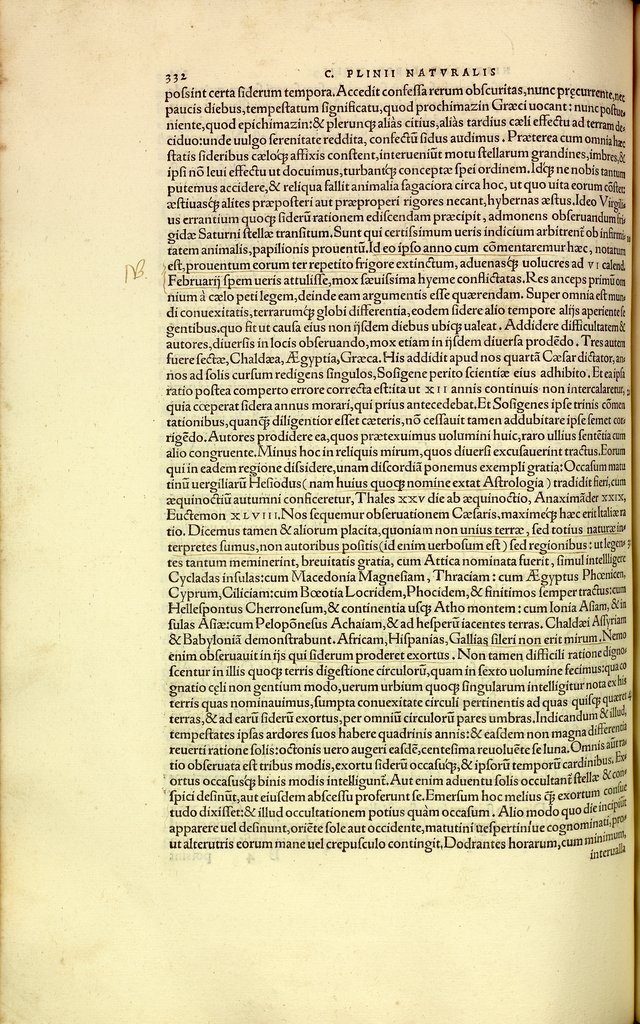 332 C. PLINII NATVRALIS
possint certa siderum tempora. Accedit confessa rerum obscuritas, nunc pręcurrente, nec
paucis diebus, tempestatum significatu, quod prochimazin Græci uocant: nunc postue
niente, quod epichimazin: & plerunq; aliàs citius, aliàs tardius cæli effectu ad terram de
ciduo: unde uulgo serenitate reddita, confectũ sidus audimus. Præterea cum omnia hæc
statis sideribus cæloq; affixis constent, interueniũt motu stellarum grandines, imbres, &
ipsi nõ leui effectu ut docuimus, turbantq; conceptæ spei ordinem. Idq; ne nobis tantum
putemus accidere, & reliqua fallit animalia sagaciora circa hoc, ut quo uita eorum cõstet:
æstiuasq; alites præposteri aut præproperi rigores necant, hybernas æstus. Ideo Virgili
us errantium quoq; siderũ rationem ediscendam præcipit, admonens obseruandum fri
gidæ Saturni stellæ transitum. Sunt qui certissimum ueris indicium arbitrent̃ ob infirmi
tatem animalis, papilionis prouentũ. Id eo ipso anno cum cõmentaremur hæc, notatum
est, prouentum eorum ter repetito frigore extinctum, aduenasq; uolucres ad VI calend.
NB.
Februarij spem ueris attulisse, mox sæuissima hyeme conflictatas. Res anceps primũ om
nium à cælo peti legem, deinde eam argumentis esse quærendam. Super omnia est mun
di conuexitatis, terrarumq; globi differentia, eodem sidere alio tempore alijs aperiente se
gentibus. quo fit ut causa eius non ijsdem diebus ubiq; ualeat. Addidere difficultatem &
autores, diuersis in locis obseruando, mox etiam in ijsdem diuersa prodẽdo. Tres autem
fuere sectæ, Chaldæa, Ægyptia, Græca. His addidit apud nos quartã Cæsar dictator, an
nos ad solis cursum redigens singulos, Sosigene perito scientiæ eius adhibito. Et ea ipsa
ratio postea comperto errore correcta est: ita ut XII annis continuis non intercalaretur,
quia cœperat sidera annus morari, qui prius antecedebat. Et Sosigenes ipse trinis cõmen
tationibus, quanq; diligentior esset cæteris, nõ cessauit tamen addubitare ipse semet cor
rigẽdo. Autores prodidere ea, quos prætexuimus uolumini huic, raro ullius sentẽtia cum
alio congruente. Minus hoc in reliquis mirum, quos diuersi excusauerint tractus. Eorum
qui in eadem regione dissidere, unam discordiã ponemus exempli gratia: Occasum matu
tinũ uergiliarũ Hesiodus (nam huius quoq; nomine extat Astrologia) tradidit fieri, cum
æquinoctiũ autumni conficeretur, Thales XXV die ab æquinoctio, Anaximãder XXIX,
Euctemon XLVIII. Nos sequemur obseruationem Cæsaris, maximeq; hæc erit Italiæ ra
tio. Dicemus tamen & aliorum placita, quoniam non unius terræ, sed totius naturæ in
terpretes sumus, non autoribus positis (id enim uerbosum est) sed regionibus: ut legen
tes tantum meminerint, breuitatis gratia, cum Attica nominata fuerit, simul intelligere
Cycladas insulas: cum Macedonia Magnesiam, Thraciam: cum Ægyptus Phœnicen,
Cyprum, Ciliciam: cum Bœotia Locridem, Phocidem, & finitimos semper tractus: cum
Hellesponto Cherronesum, & continentia usq; Atho montem: cum Ionia Asiam, & in
sulas Asiæ: cum Peloponeso Achaiam, & ad hesperũ iacentes terras. Chaldæi Assyriam
& Babyloniã demonstrabunt. Africam, Hispanias, Gallias sileri non erit mirum. Nemo
enim obseruauit in ijs qui siderum proderet exortus. Non tamen difficili ratione digno
scentur in illis quoq; terris digestione circulorũ, quam in sexto uolumine fecimus: qua co
gnatio cęli non gentium modo, uerum urbium quoq; singularum intelligitur nota ex his
terris quas nominauimus, sumpta conuexitate circuli pertinentis ad quas quisq; quæret
terras, & ad earũ siderũ exortus, per omniũ circulorũ pares umbras. Indicandum & illud,
tempestates ipsas ardores suos habere quadrinis annis: & easdem non magna differentia
reuerti ratione solis: octonis uero augeri easdẽ, centesima reuoluẽte se luna. Omnis autẽ ra
tio obseruata est tribus modis, exortu siderũ occasuq;, & ipsorũ temporũ cardinibus. Ex
ortus occasusq; binis modis intelligunt̃. Aut enim aduentu solis occultant̃ stellæ & con
spici desinũt, aut eiusdem abscessu proferunt se. Emersum hoc melius q̃ exortum consue
tudo dixisset: & illud occultationem potius quàm occasum. Alio modo quo die incipiũt
apparere uel desinunt, oriẽte sole aut occidente, matutini uespertiniue cognominati, pro
ut alterutris eorum mane uel crepusculo contingit, Dodrantes horarum, cum minimum,
interualla